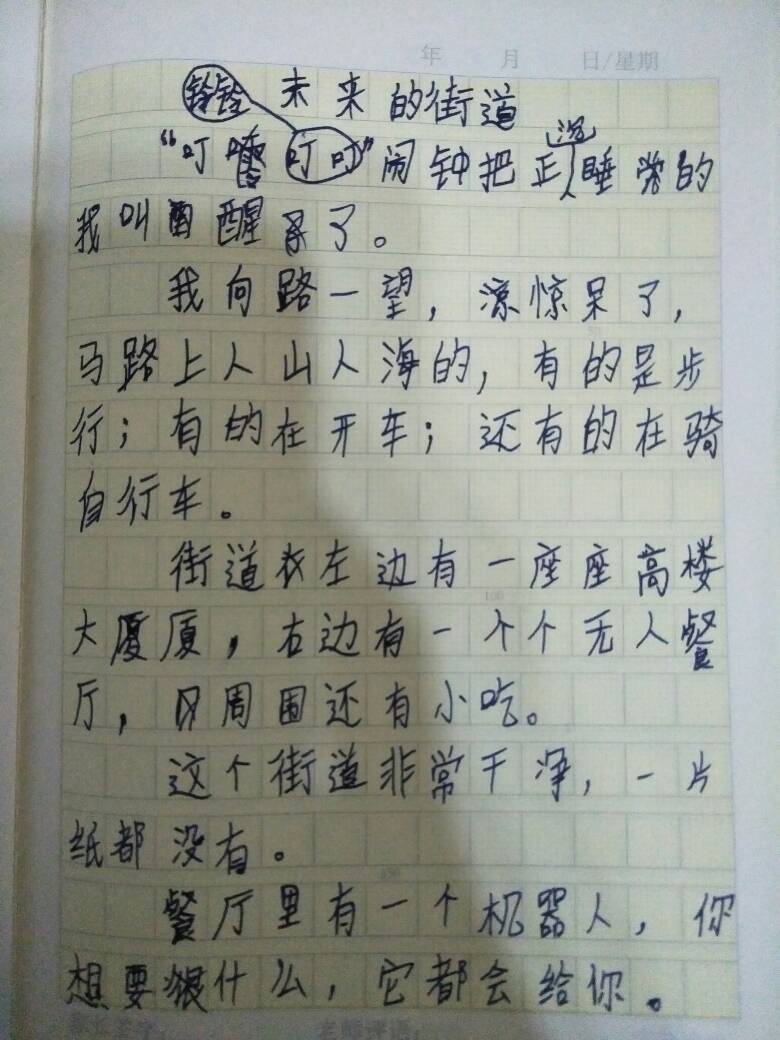 年 月 日/星期
铃铃 未来的街道
沉
“叮 叮叮”闹钟把正睡觉的
我叫醒了。
我向路一望，惊呆了，
马路上人山人海的，有的是步
行；有的在开车；还有的在骑
自行车。
街道左边有一座座高楼
大厦，右边有一个个无人餐
厅，周围还有小吃。
100
这个街道非常干净，一片
纸都没有。
餐厅里有一个机器人，你
想要什么，它都会给你。